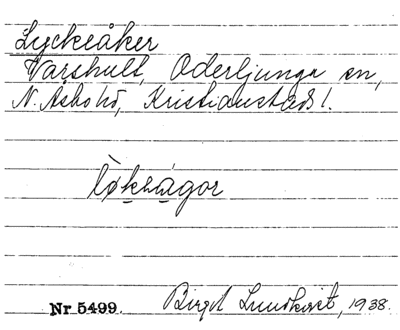 Lyckeåker
Varshult, Oderljunga sn,
N. Åsbo hd, Kristianstads l.
Nr 5499. Birgit Lundkvist, 1938.